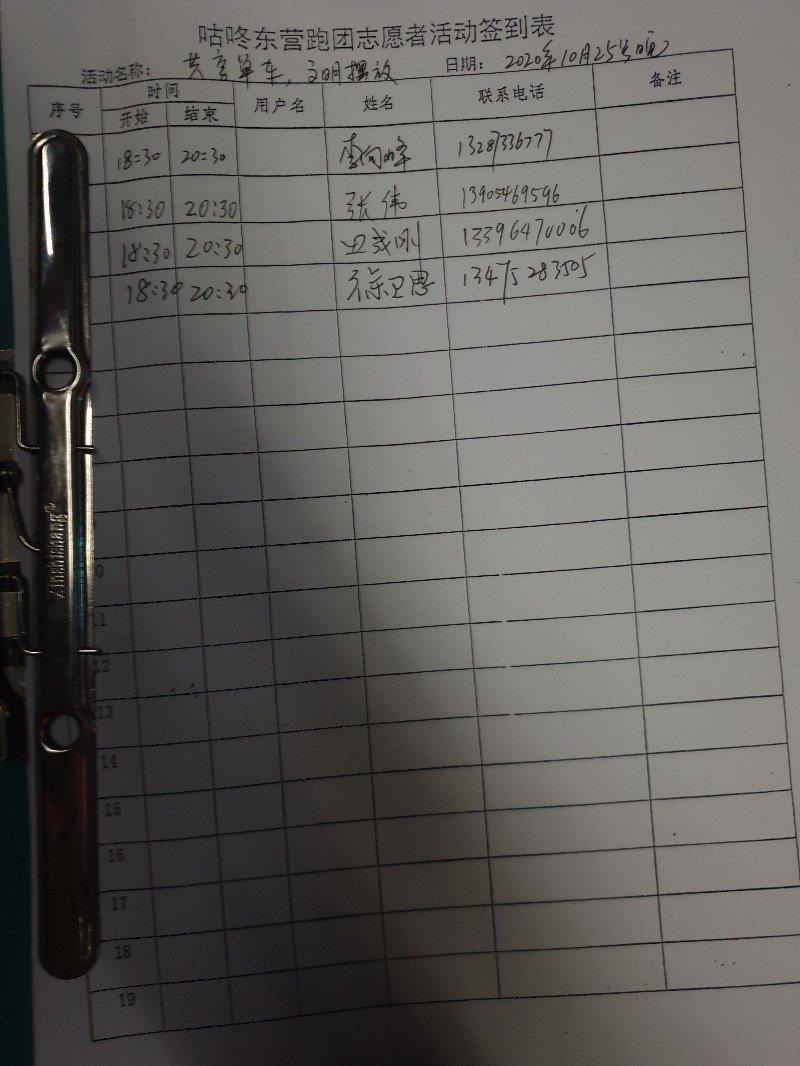 咕咚东营跑团志愿者活动签到表
活动名称: 共享单车,文明摆放 日期: 2020年10月25号晚
序号 时间 用户名 姓名 联系电话 备注
开始 结束
18:30 20:30 李向峰 13287336777
18:30 20:30 张伟 13905469596
18:30 20:30 刚 13396470006
18:30 20:30 徐卫 13475283505
11
12
13
14
15
16
17
18
19